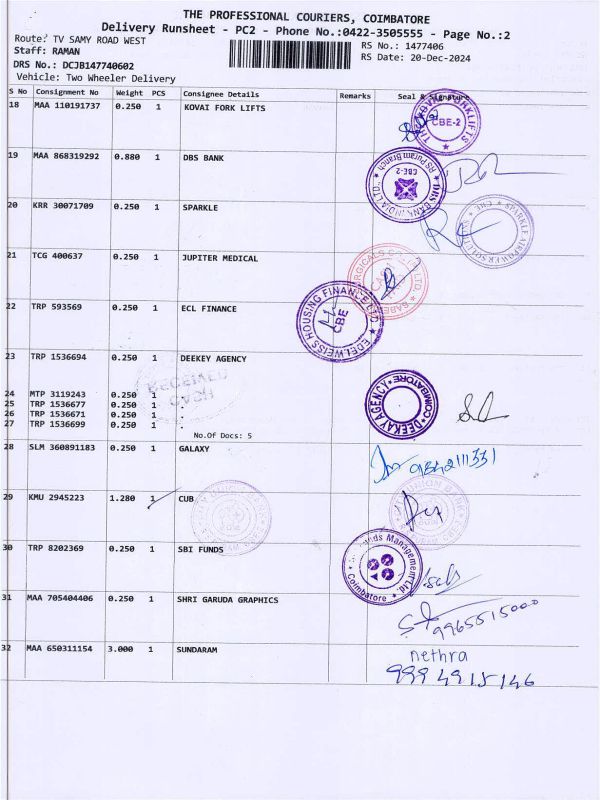 THE PROFESSIONAL COURIERS, COIMBATORE
Delivery Runsheet - PC2 - Phone No.:0422-3505555 - Page No.:2
Route: TV SAMY ROAD WEST
RS No.: 1477406
Staff: RAMAN
RS Date: 20-Dec-2024
DRS No.: DCJB147740602
Vehicle: Two Wheeler Delivery
S No Consignment No Weight PCS Consignee Details Remarks Seal & Signature
18 MAA 110191737 0.250 1 KOVAI FORK LIFTS
CBE-2
19 MAA 868319292 0.880 1 DBS BANK
DBS BANK INDIA LTD., RS Puram Branch CBE-2
20 KRR 30071709 0.250 1 SPARKLE
SPARKLE AIRPOWER SOLUTIONS
21 TCG 400637 0.250 1 JUPITER MEDICAL
22 TRP 593569 0.250 1 ECL FINANCE
EDELWEISS HOUSING FINANCE LTD CBE
23 TRP 1536694 0.250 1 DEEKEY AGENCY
RECEIVED
24 MTP 3119243 0.250 1 .
25 TRP 1536677 0.250 1 .
26 TRP 1536671 0.250 1 .
27 TRP 1536699 0.250 1 .
No.Of Docs: 5
DEEKAY AGENCY COIMBATORE
28 SLM 360891183 0.250 1 GALAXY
9842111331
29 KMU 2945223 1.280 1 CUB
30 TRP 8202369 0.250 1 SBI FUNDS
Funds Management Ltd. Coimbatore
31 MAA 705404406 0.250 1 SHRI GARUDA GRAPHICS
9965515000
32 MAA 650311154 3.000 1 SUNDARAM
nethra
9994915146